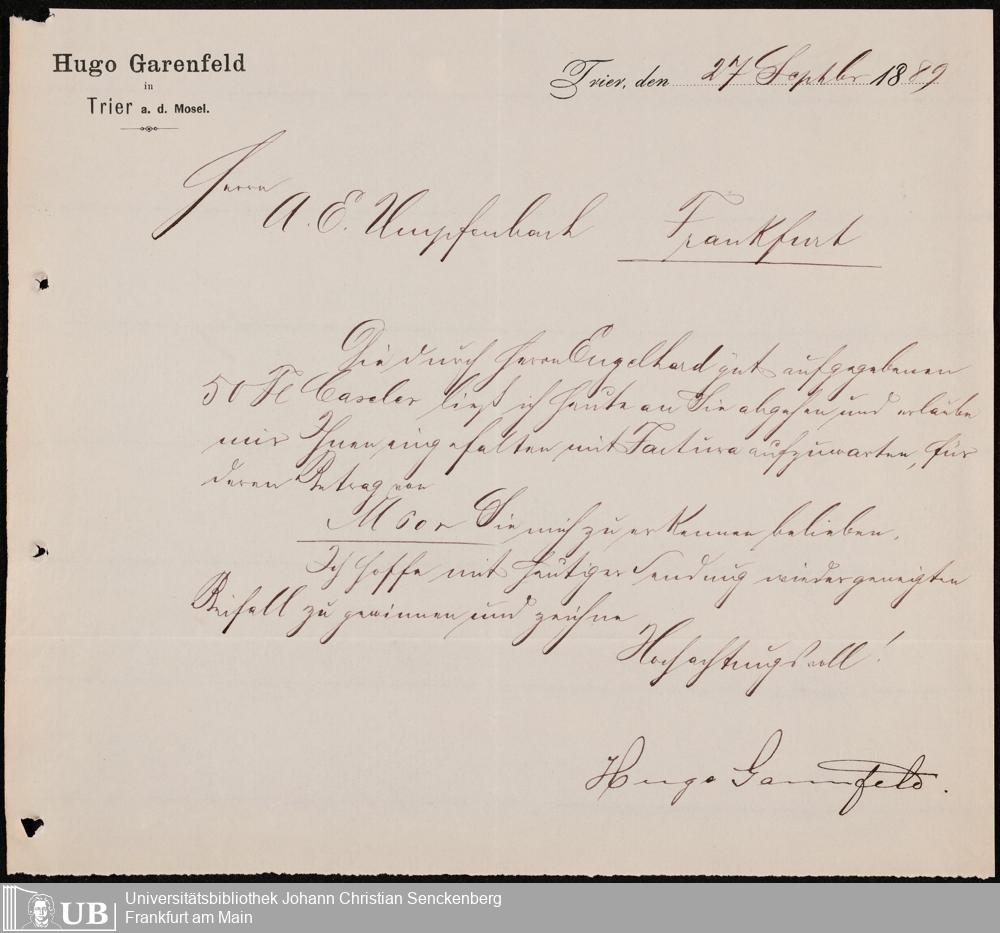 Hugo Garenfeld
in
Trier a. d. Mosel.
Trier, den 27 Septbr 1889
Herrn
A. E. Umpfenbach Frankfurt
Die durch Herrn Engelhard güt. aufgegebenen
50 Fl Caseler ließ ich heute an Sie abgehen und erlaube
mir Ihnen eingefalten mit Factura aufzuwarten, für
deren Betrag von
M 60 Sie mich zu erkennen belieben.
Ich hoffe mit heutiger Sendung wieder geneigten
Beifall zu gewinnen und zeichne
Hochachtungsvoll!
Hugo Garenfeld.
UB
Universitätsbibliothek Johann Christian Senckenberg
Frankfurt am Main